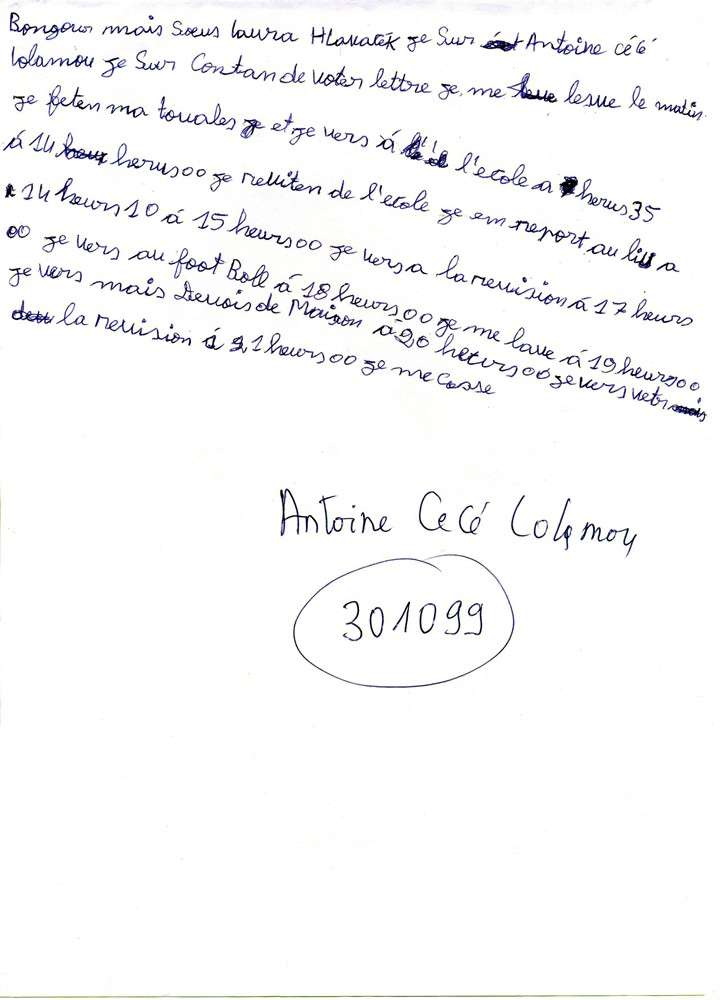 Bongour mais Soeus laura Hlavaték ge Sur Antoine cécé
lolamou ge Sur Contan de voter lettre ge me lesue le matin
ge feten ma touales ge et ge vers á l'école a 7 herus 35
á 14 herus 00 ge reviten de l'école ge em report au lit a
14 heurs 10 á 15 heurs 00 ge vers a la revision á 17 heurs
00 ge vers au foot Boll á 18 heurs 00 ge me lave á 19 heurs 00
ge vers mais Devois de Maison á 20 heturs 00 ge vers
la revision á 21 heurs 00 ge me casse
Antoine Cecé Lolamou
301099